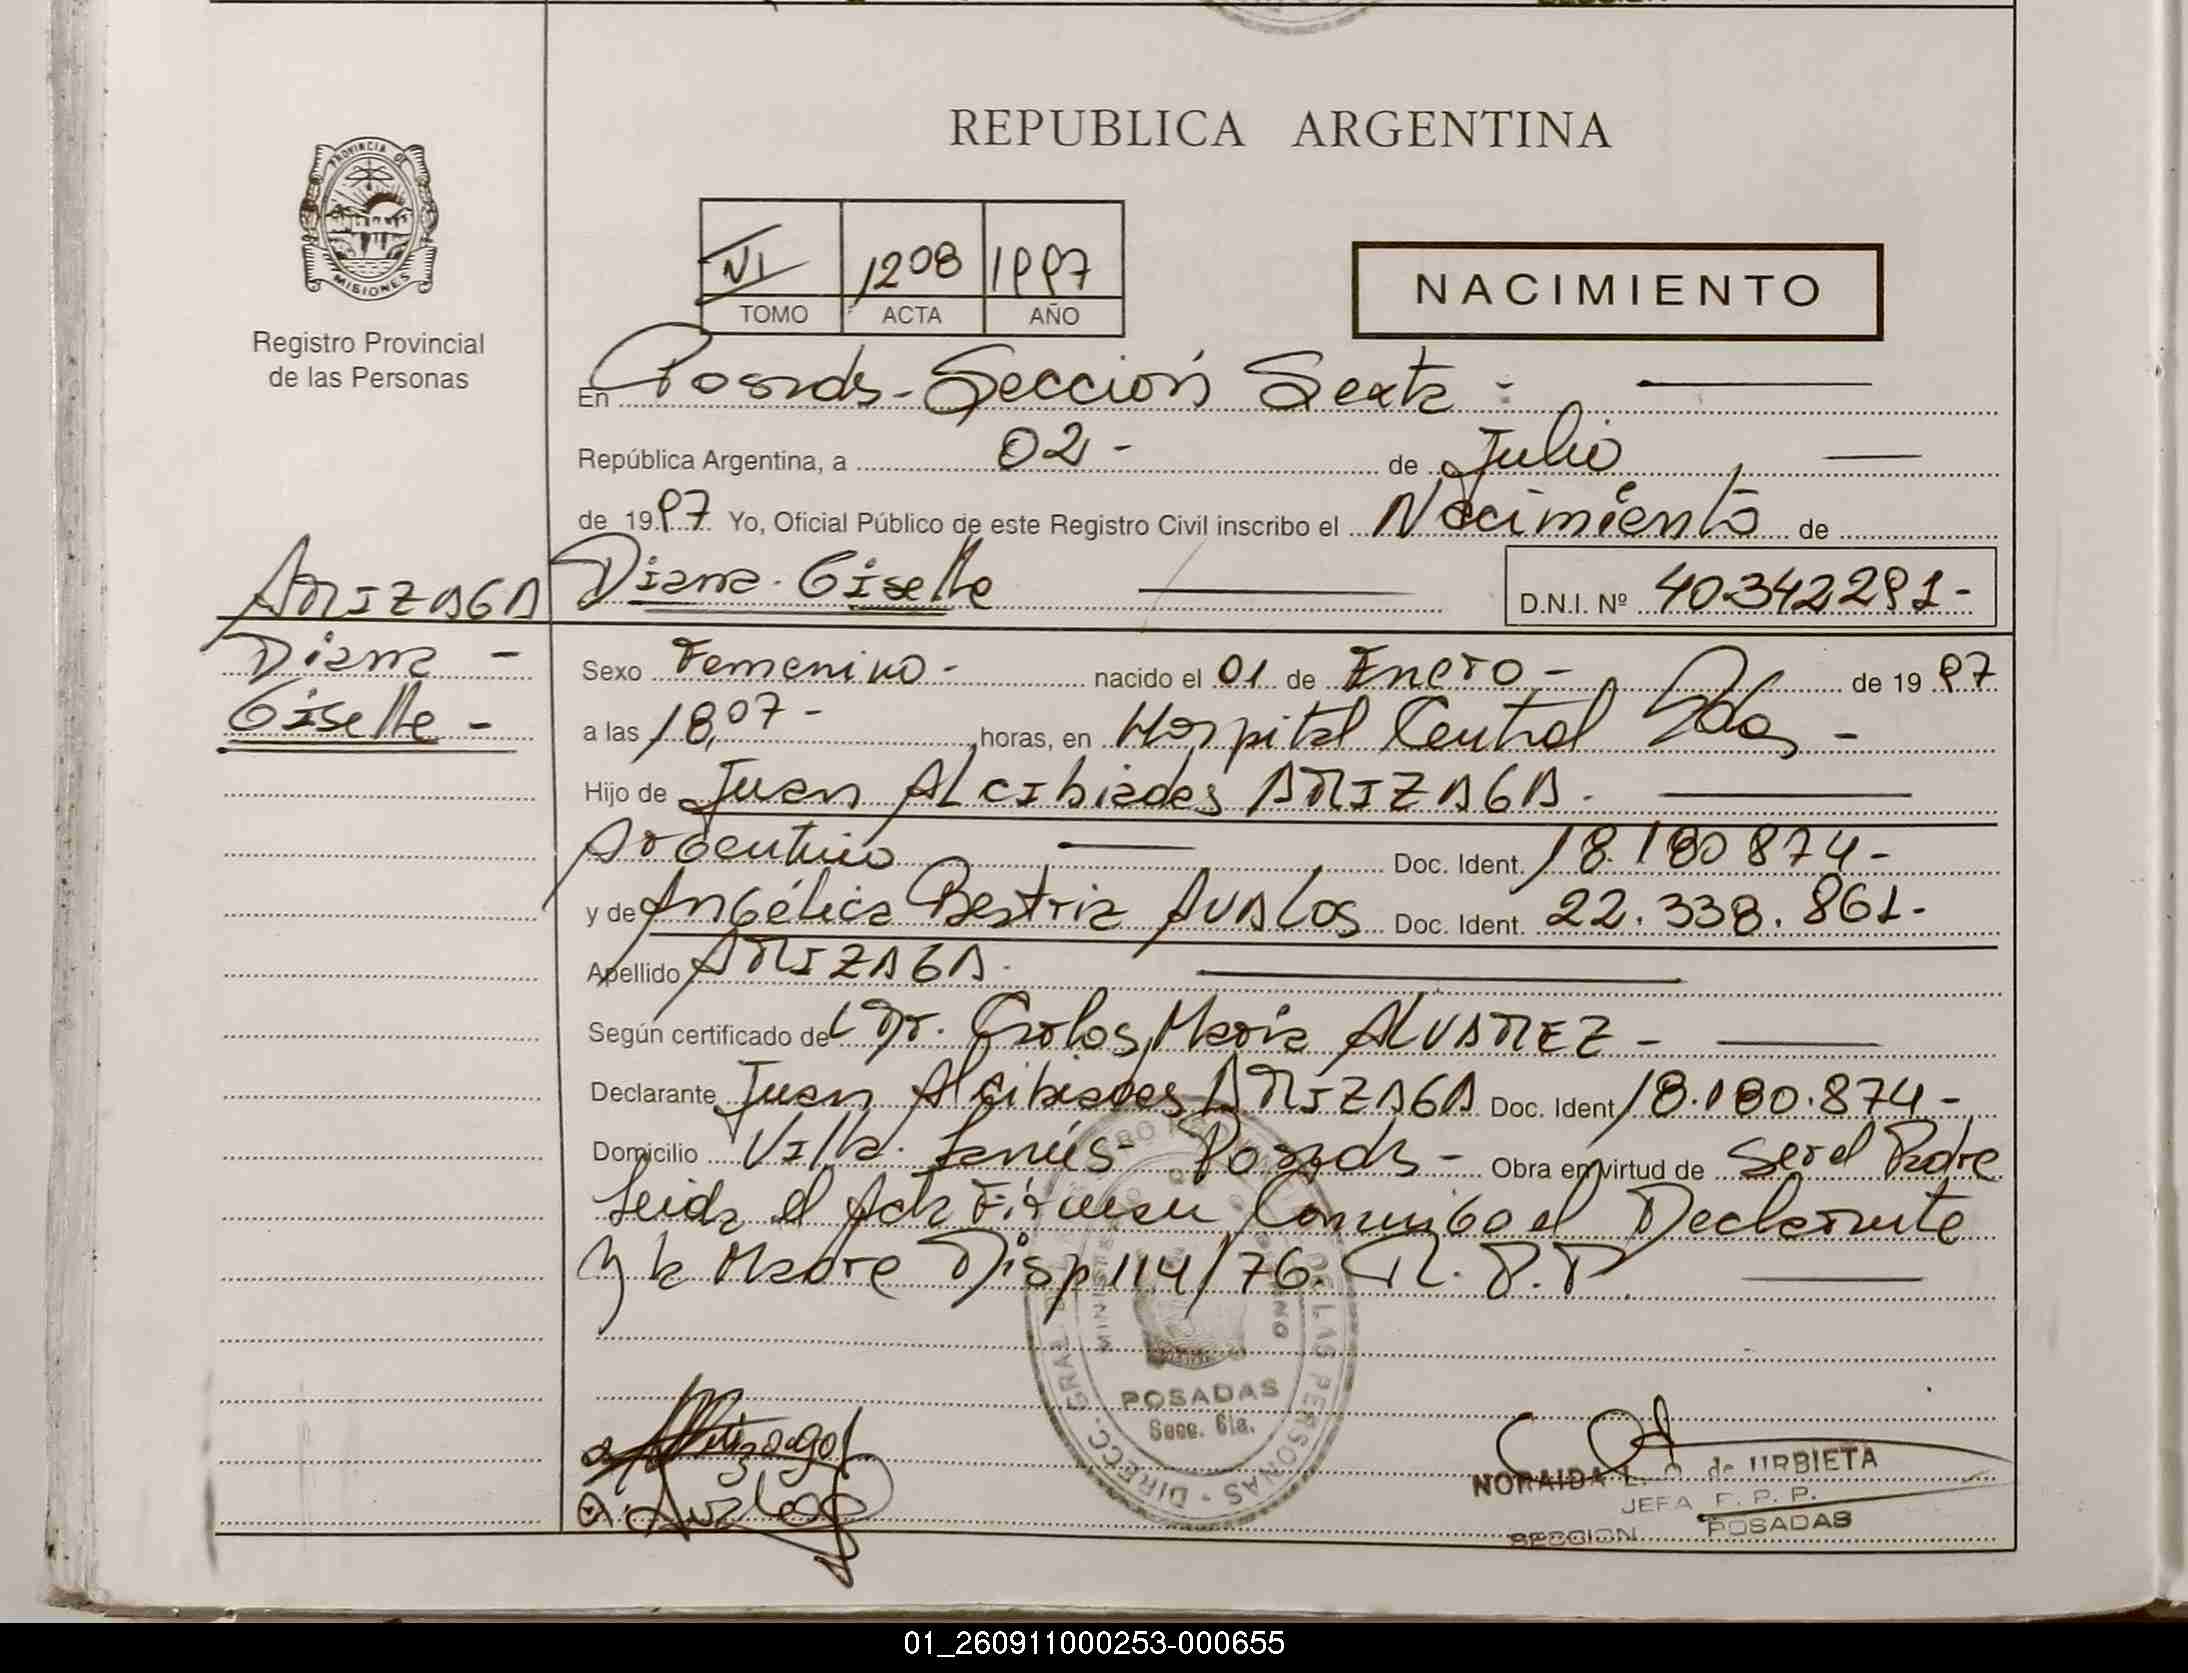 REPUBLICA ARGENTINA
PROVINCIA DE
MISIONES
Registro Provincial
de las Personas
VI 1208 1997
TOMO ACTA AÑO
NACIMIENTO
En Posadas - Sección Sexta -
República Argentina, a 02 - de Julio
de 1997 Yo, Oficial Público de este Registro Civil inscribo el Nacimiento de
ARIZAGA
Diana -
Giselle -
Diana Giselle D.N.I. Nº 40.342291-
Sexo Femenino - nacido el 01 de Enero - de 1997
a las 18,07 - horas, en Hospital Central Pdas -
Hijo de Juan Alcibiades ARIZAGA.
Argentino Doc. Ident. 18.180874-
y de Angélica Beatriz AVALOS Doc. Ident. 22.338.861-
Apellido ARIZAGA.
Según certificado del Dr. Carlos Maria ALVAREZ -
Declarante Juan Alcibiades ARIZAGA Doc. Ident 18.180.874-
Domicilio Villa Lanús - Posadas - Obra en virtud de ser el Padre
Leida el Acta Firman Conmigo el Declarante
y la Madre Disp 114/76. R.P.P
DIRECC. GRAL DE LAS PERSONAS
POSADAS
Secc. 6ta.
Arizaga
Avalos
NORAIDA L. de URBIETA
JEFA P. P.
SECCION POSADAS
01_260911000253-000655